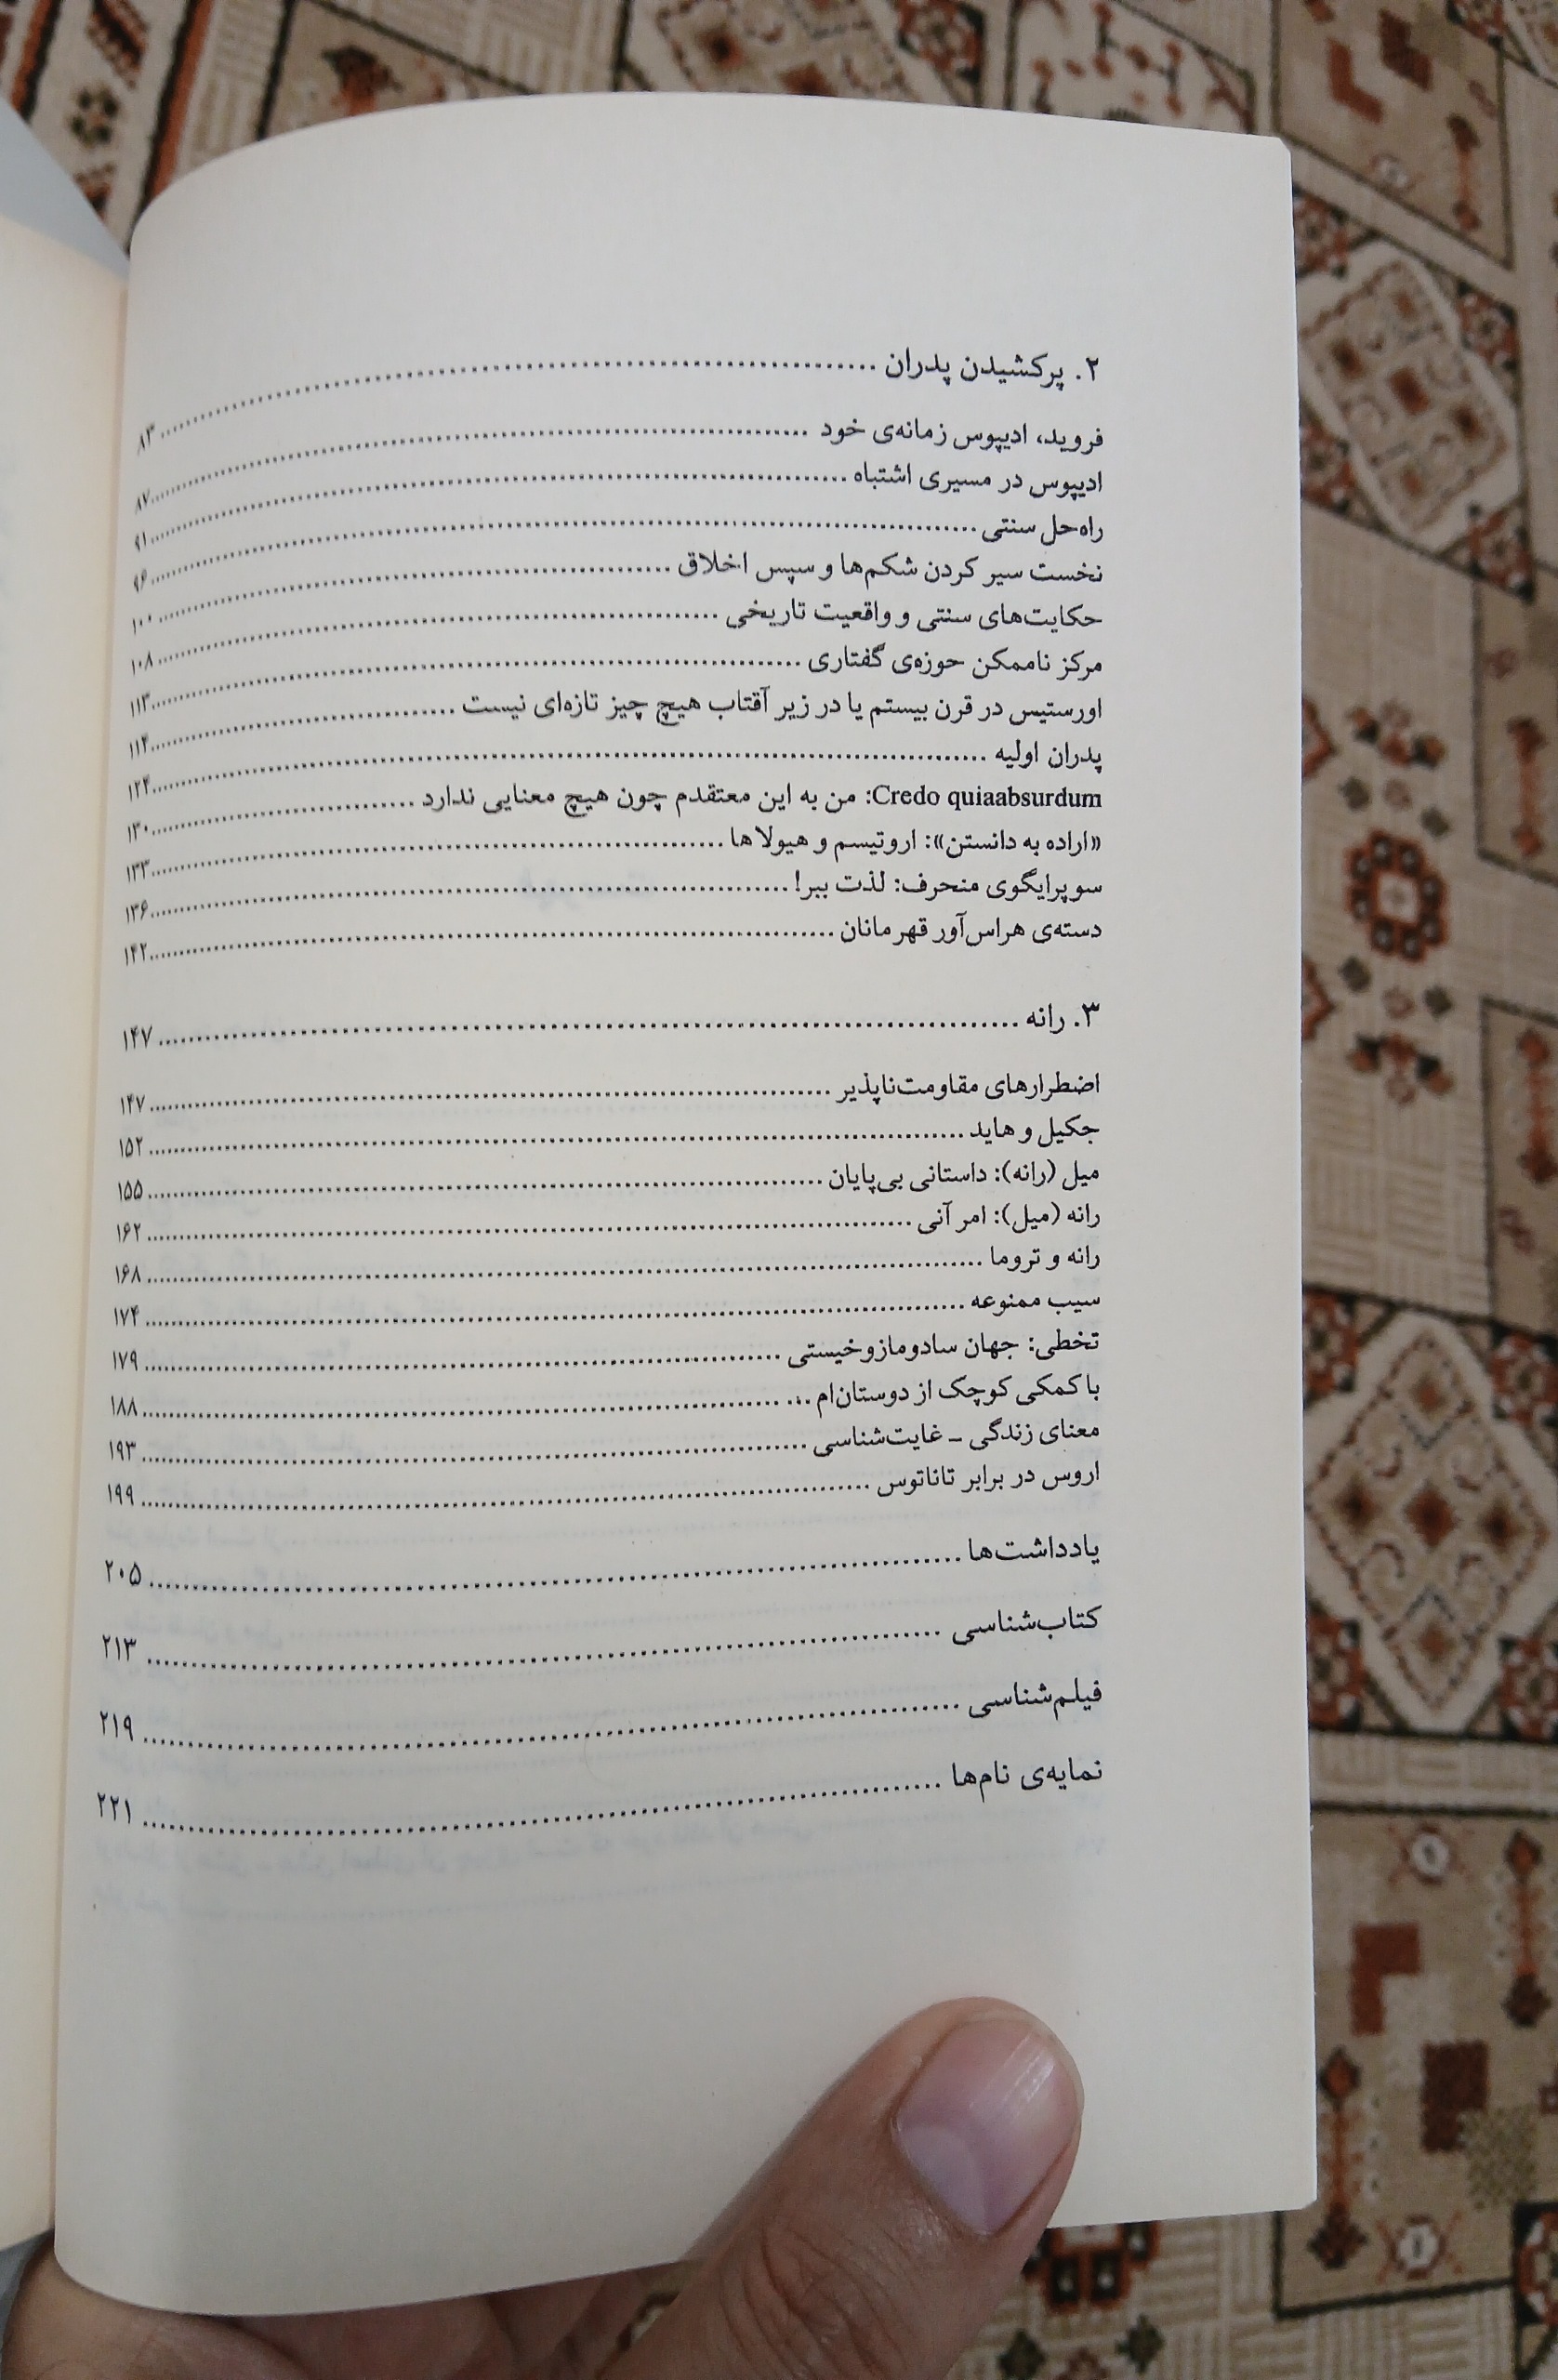 ۲. پرکشیدن پدران ........ ۸۳
فروید، ادیپوس زمانه‌ی خود ........ ۸۷
ادیپوس در مسیری اشتباه ........ ۹۱
راه‌حل سنتی ........ ۹۶
نخست سیر کردن شکم‌ها و سپس اخلاق ........ ۱۰۰
حکایت‌های سنتی و واقعیت تاریخی ........ ۱۰۸
مرکز ناممکن حوزه‌ی گفتاری ........ ۱۱۳
اورستیس در قرن بیستم یا در زیر آفتاب هیچ چیز تازه‌ای نیست ........ ۱۱۴
پدران اولیه ........ ۱۲۴
Credo quiaabsurdum: من به این معتقدم چون هیچ معنایی ندارد ........ ۱۳۰
«اراده به دانستن»: اروتیسم و هیولاها ........ ۱۳۳
سوپرایگوی منحرف: لذت ببر! ........ ۱۳۶
دسته‌ی هراس‌آور قهرمانان ........ ۱۴۲
۳. رانه ........ ۱۴۷
اضطرارهای مقاومت‌ناپذیر ........ ۱۴۷
جکیل و هاید ........ ۱۵۲
میل (رانه): داستانی بی‌پایان ........ ۱۵۵
رانه (میل): امر آنی ........ ۱۶۲
رانه و تروما ........ ۱۶۸
سیب ممنوعه ........ ۱۷۴
تخطی: جهان سادومازوخیستی ........ ۱۷۹
با کمکی کوچک از دوستان‌ام ... ........ ۱۸۸
معنای زندگی ـ غایت‌شناسی ........ ۱۹۳
اروس در برابر تاناتوس ........ ۱۹۹
یادداشت‌ها ........ ۲۰۵
کتاب‌شناسی ........ ۲۱۳
فیلم‌شناسی ........ ۲۱۹
نمایه‌ی نام‌ها ........ ۲۲۱